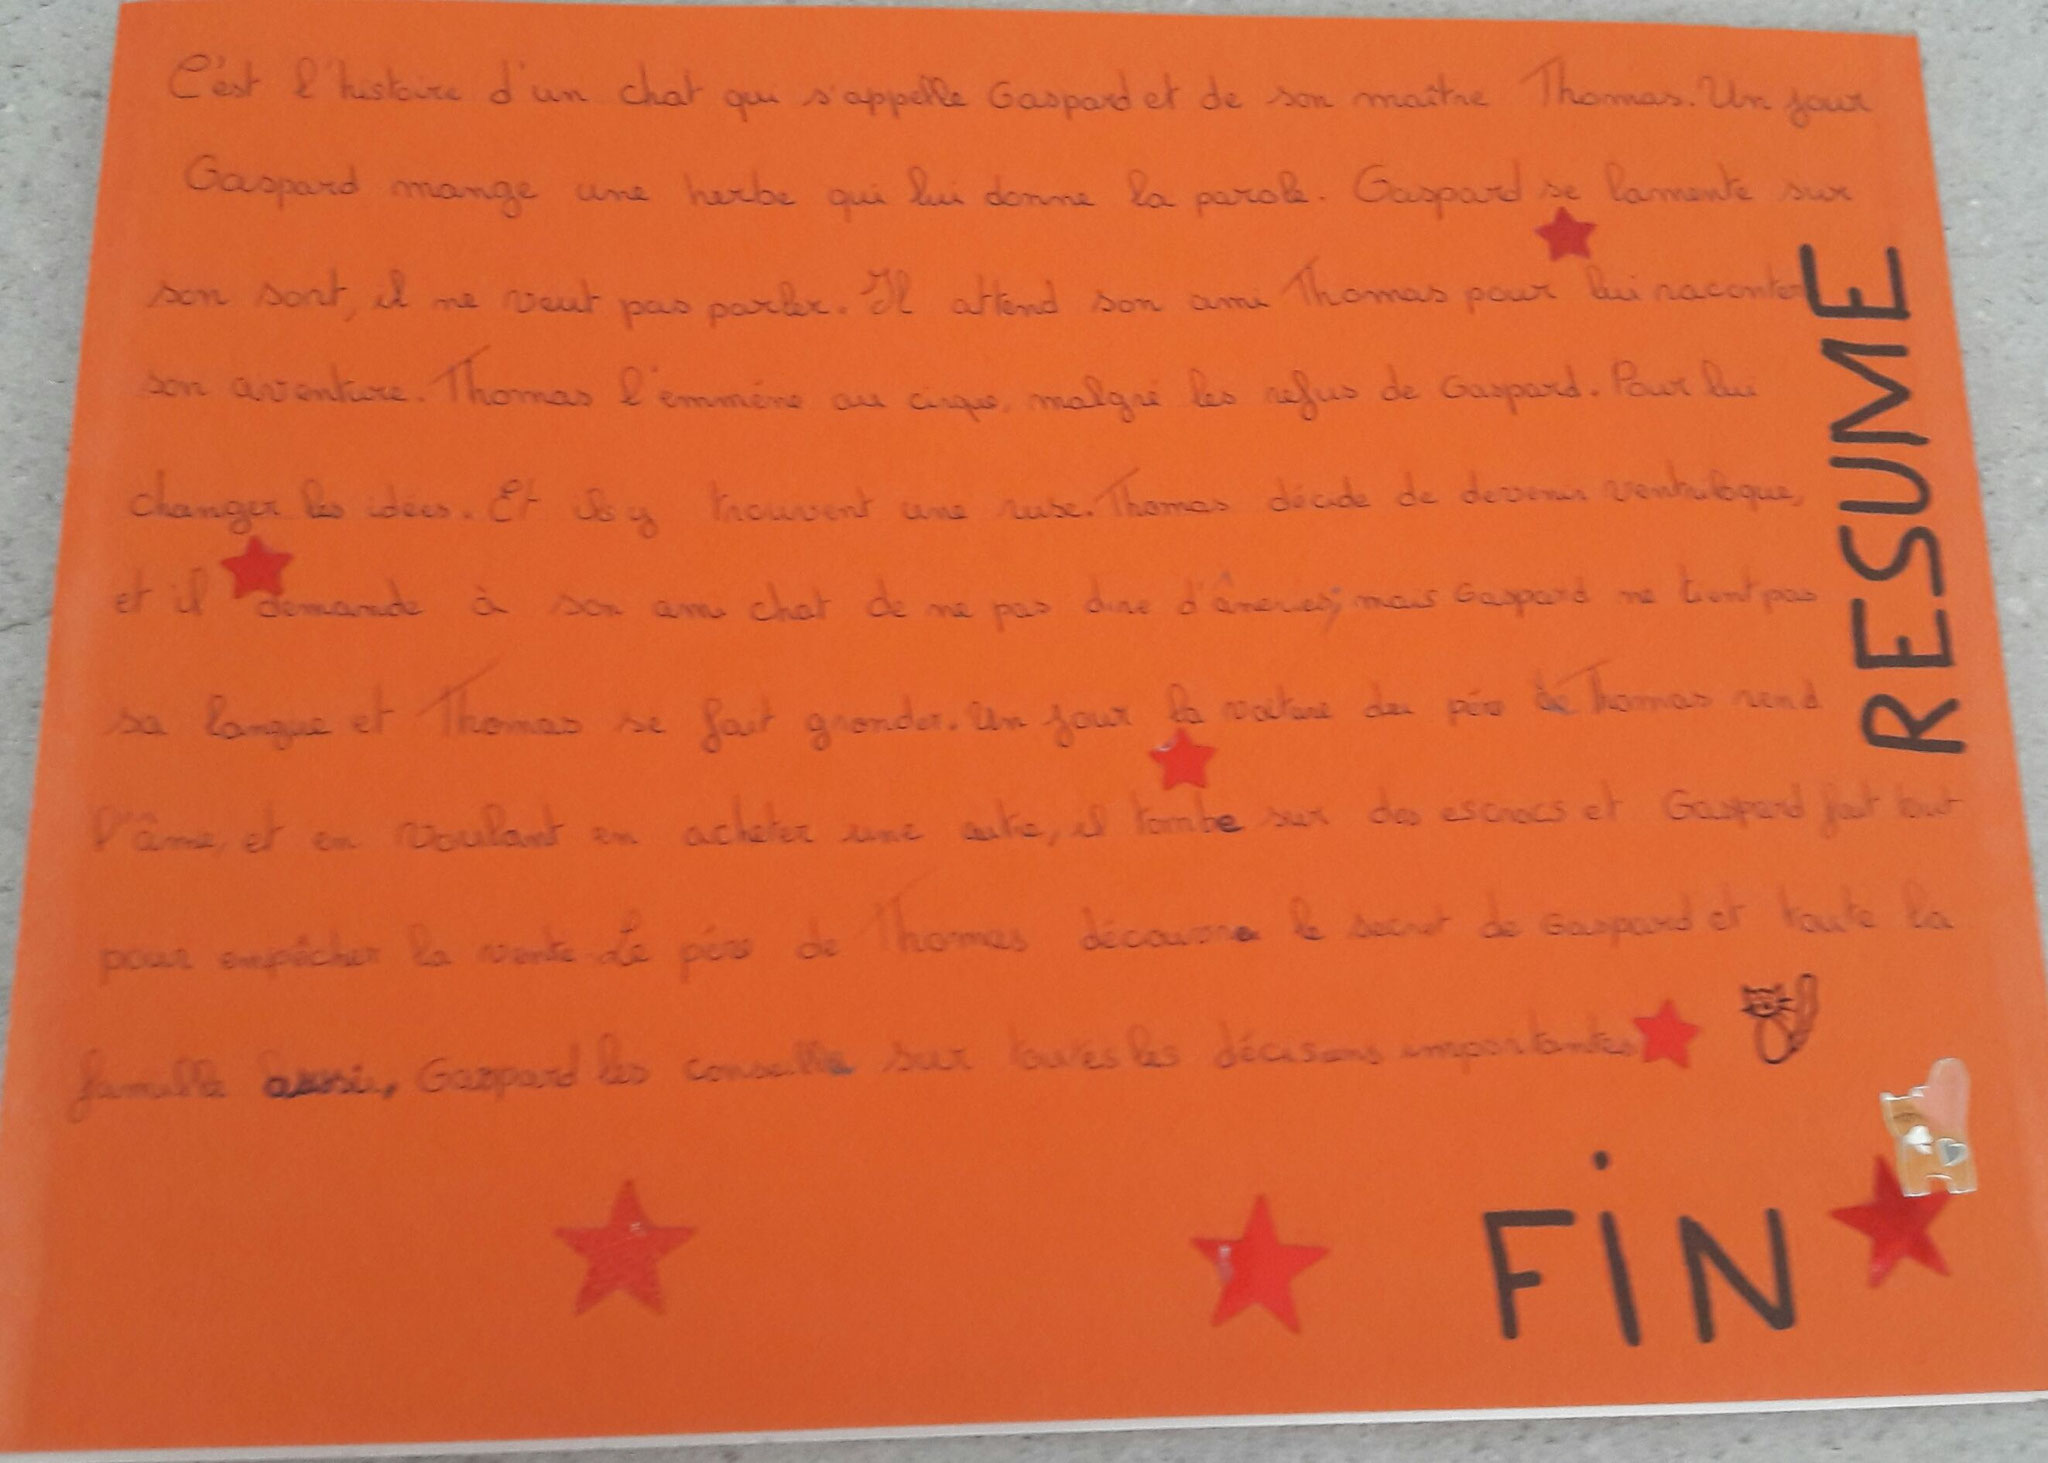 RESUME
C'est l'histoire d'un chat qui s'appelle Gaspard et de son maître Thomas. Un jour
Gaspard mange une herbe qui lui donne la parole. Gaspard se lamente sur
son sort, il ne veut pas parler. Il attend son ami Thomas pour lui raconter
son aventure. Thomas l'emmène au cirque, malgré les refus de Gaspard. Pour lui
changer les idées. Et ils y trouvent une ruse. Thomas décide de devenir ventriloque,
et il demande à son ami chat de ne pas dire d'âneries; mais Gaspard ne tient pas
sa langue et Thomas se fait gronder. Un jour la voiture du père de Thomas rend
l'âme, et en voulant en acheter une autre, il tombe sur des escrocs et Gaspard fait tout
pour empêcher la vente. Le père de Thomas découvre le secret de Gaspard et toute la
famille aussi, Gaspard les conseille sur toutes les décisions importantes
FiN